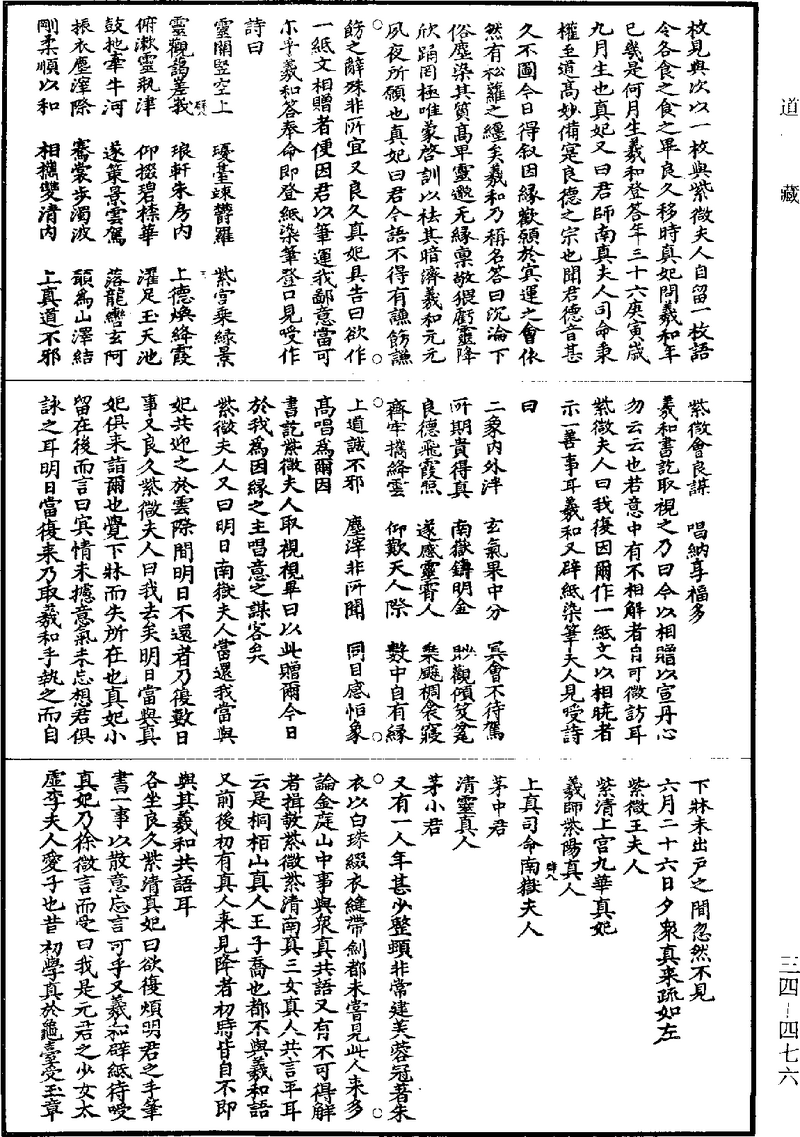 道藏
枚見與次以一枚與紫微夫人自留一枚語
令各食之食之畢良久移時真妃問羲和年
已幾是何月生羲和登答年三十六庚寅歲
九月生也真妃又曰君師南真夫人司命秉
權至道高妙備寔良德之宗也聞君德音甚
久不圖今日得叙因緣歡願於冥運之會依
然有松蘿之纏矣羲和乃稱名答曰沉淪下
俗塵染其質高卑靈邈无緣稟敬猥虧靈降
欣踊罔極唯蒙啓訓以祛其暗濟羲和元元
夙夜所願也真妃曰君今語不得有謙飾謙
飾之辭殊非所宜又良久真妃具告曰欲作
一紙文相贈者便因君以筆運我鄙意當可
尔乎羲和答奉命即登紙染筆登口見受作
詩曰
靈闕竪空上　瓊臺竦欝羅　紫宮乘緑景
靈觀藹嵯峩　琅軒朱房內　上德煥絳霞
俯漱靈瓶津　仰掇碧㮈華　濯足玉天池
鼓枻牽牛河　遂策景雲駕　落龍轡玄阿
振衣塵滓際　褰裳步濁波　願為山澤結
剛柔順以和　相攜雙清內　上真道不邪
紫微會良謀　唱納享福多
羲和書訖取視之乃曰今以相贈以宣丹心
勿云云也若意中有不相解者自可微訪耳
紫微夫人曰我復因爾作一紙文以相曉者
示一善事耳羲和又辟紙染筆夫人見受詩
曰
二象內外泮　玄氣果中分　冥會不待駕
所期貴得真　南嶽鑄明金　眇觀傾笈寃
良德飛霞照　遂感靈霄人　乘飈裯衾寢
齊牢攜絳雲　仰歎天人際　數中自有緣
上道誠不邪　塵滓非所聞　同目感恒象
高唱為爾因
書訖紫微夫人取視視畢曰以此贈爾今日
於我為因緣之主唱意之謀客矣
紫微夫人又曰明日南嶽夫人當還我當與
妃共迎之於雲陶間明日不還者乃復數日
事又良久紫微夫人曰我去矣明日當與真
妃俱来詣爾也覺下牀而失所在也真妃小
留在後而言曰冥情未攄意氣未忘想君俱
詠之耳明日當復来乃取羲和手執之而自
下牀未出户之間忽然不見
六月二十六日夕衆真来疏如左
紫微王夫人
紫清上宮九華真妃
羲師紫陽真人
上真司命南嶽夫人
茅中君
清靈真人
茅小君
又有一人年甚少整頓非常建芙蓉冠著朱
衣以白珠綴衣縫帶劍都未嘗見此人来多
論金庭山中事與衆真共語又有不可得解
者揖敬紫微紫清南真三女真人共言平耳
云是桐栢山真人王子喬也都不與羲和語
又前後初有真人来見降者初時皆自不即
與其羲和共語耳
各坐良久紫清真妃曰欲復煩明君之手筆
書一事以散意忘言可乎又羲和辟紙待受
真妃乃徐徵言而受曰我是元君之少女太
虛李夫人愛子也昔初學真於龜臺受玉章
三四－四七六